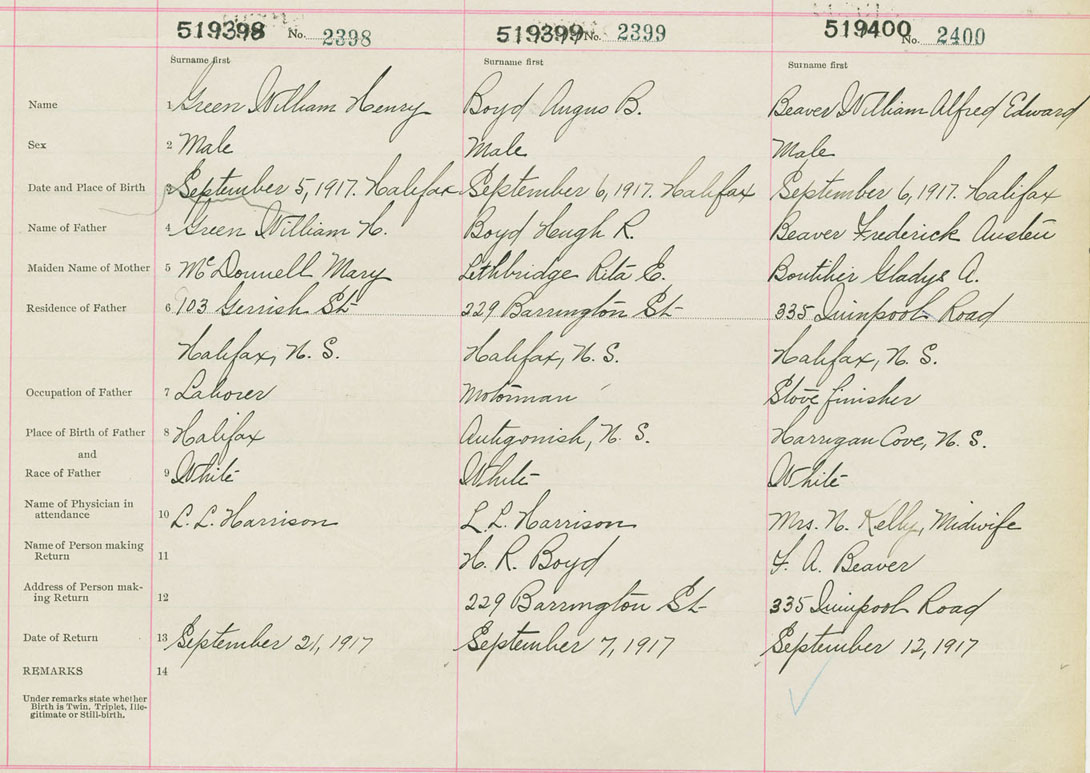 519398 No. 2398 519399 No. 2399 519400 No. 2400
Surname first Surname first Surname first
Name 1 Green William Henry Boyd Angus B. Beaver William Alfred Edward
Sex 2 Male Male Male
Date and Place of Birth 3 September 5, 1917. Halifax September 6, 1917. Halifax September 6, 1917. Halifax
Name of Father 4 Green William H. Boyd Hugh R. Beaver Frederick Austen
Maiden Name of Mother 5 McDonnell Mary Lethbridge Rita E. Boutilier Gladys A.
Residence of Father 6 103 Gerrish St 229 Barrington St 335 Quinpool Road
Halifax, N. S. Halifax, N. S. Halifax, N. S.
Occupation of Father 7 Laborer Motorman Stove finisher
Place of Birth of Father 8 Halifax Antigonish, N. S. Harrigan Cove, N. S.
and
Race of Father 9 White White White
Name of Physician in
attendance 10 L. L. Harrison L. L. Harrison Mrs. N. Kelly, Midwife
Name of Person making
Return 11 H. R. Boyd F. A. Beaver
Address of Person mak-
ing Return 12 229 Barrington St 335 Quinpool Road
Date of Return 13 September 21, 1917 September 7, 1917 September 12, 1917
REMARKS 14
Under remarks state whether
Birth is Twin, Triplet, Ille-
gitimate or Still-birth.